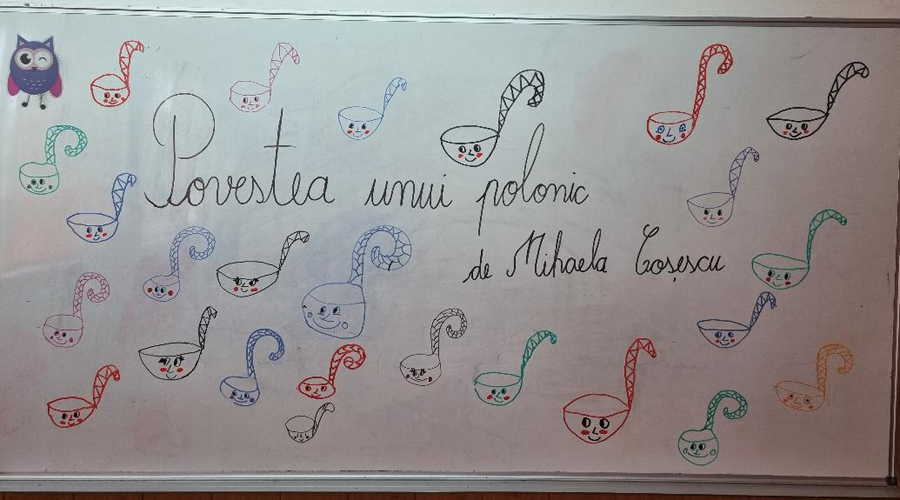 Povestea unui polonic
de Mihaela Coșescu